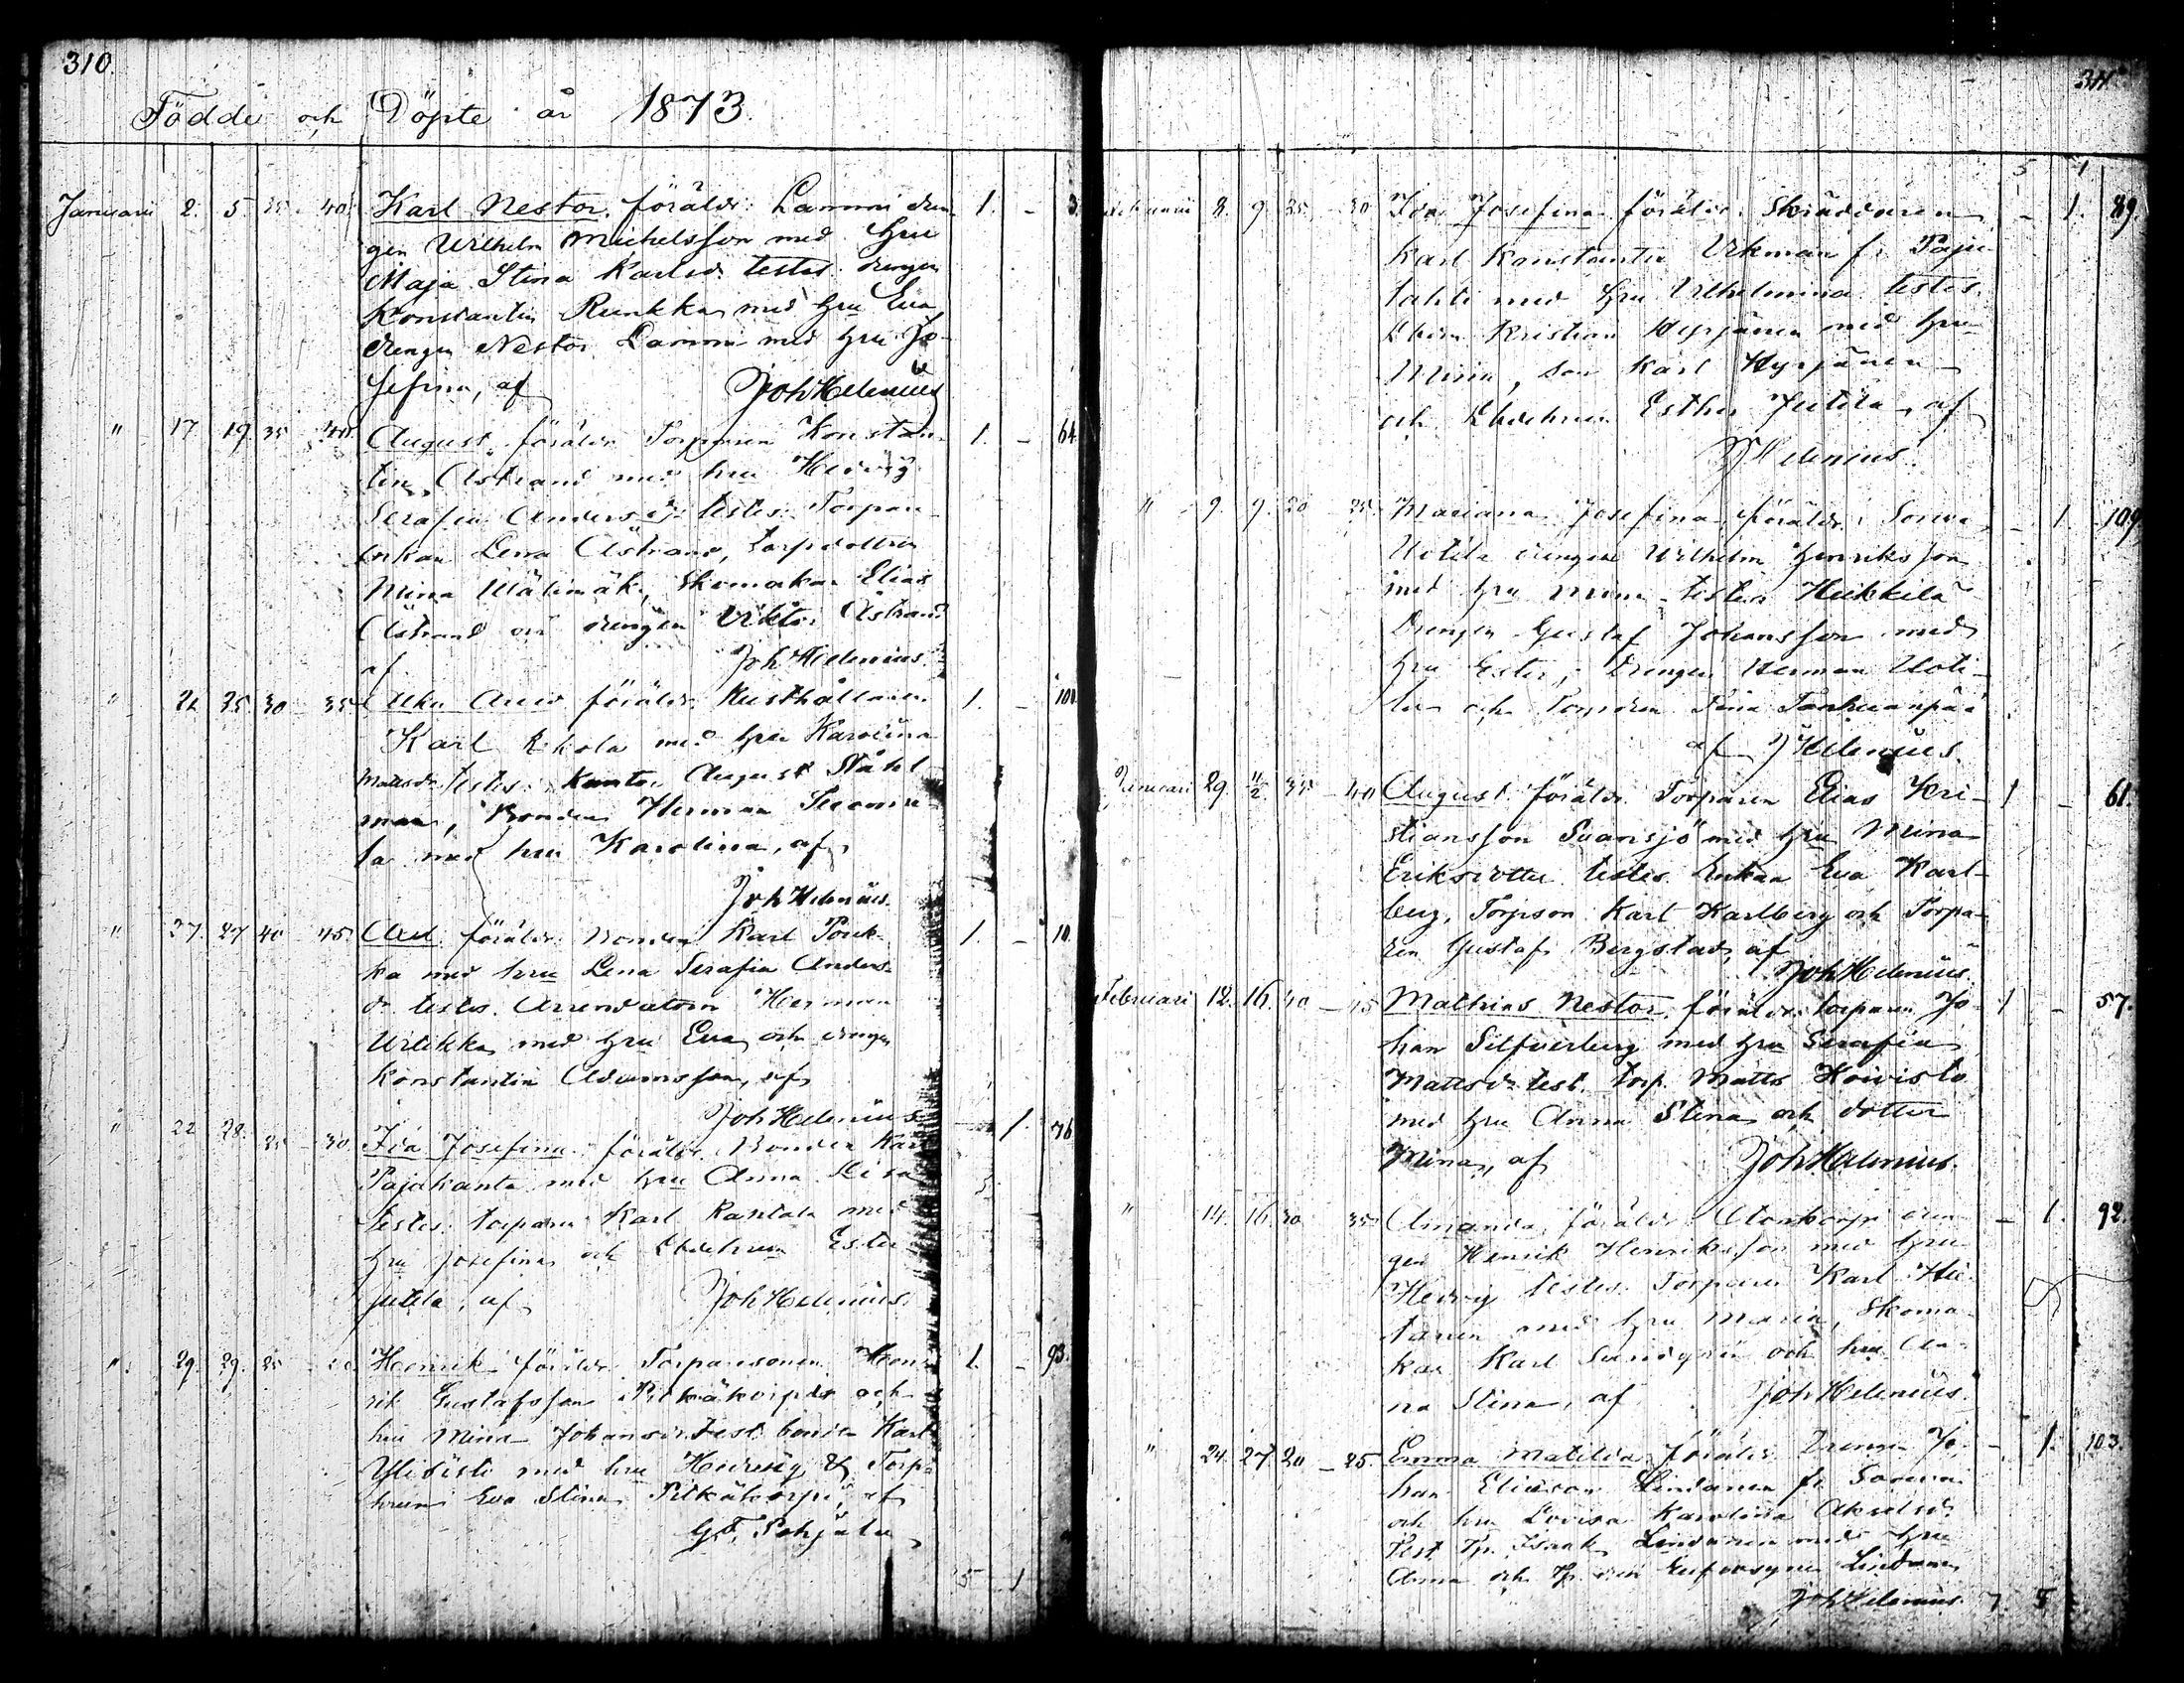 310.
Födde och Döpte år 1873.
Januarii 2. 5. 35 - 40. Karl Nestor, föräldr. Lammi drän- 1. - 3.
gen Wilhelm Michelsson med hru
Maja Stina Karlsdr. testes. drengen
Konstantin Runkka med hru Eva
drengen Nestor Lammi med hru Jo-
sefina, af Joh Helenius
" 17 19. 35 40. August, föräldr. Torparen Konstan- 1. - 64.
tin Åstrand med hru Hedvig
Serafia Andersdr. testes. Torpare
enkan Lena Åstrand, torpdottren
Mina Wälimäk, Skomakar Elias
Åstrand och drengen Viktor Åstrand
af Joh Helenius.
" 22 25. 30 - 35 föräldr. Rusthållaren 1. - 100
Karl Erkola med hru Karolina
Mattsdr. testes. Kantor August Ståhl-
man, Bonden Herman Tuomu-
la med hru Karolina, af
Joh Helenius.
" 27. 27 40 - 45. Axel. föräldr. Bonden Karl Pouk- 1. - 10.
ka med hru Lena Serafia Anders-
dr. testes. Arrendatorn Herman
Urlikka med hru Eva och drengen
Konstantin Adamsson, af
Joh Helenius
" 22 28. 25 - 30 Ida Josefina. föräldr. Bonden Karl - 1. 76.
Pajukanta med hru Anna Lisa
testes. torparen Karl Rantala med
hru Josefina och Ester
Jutila, af Joh Helenius.
" 29. 29. 25 Henrik. föräldr. Torparesonen Hen- 1. - 93.
rik Gustafsson Pitkäkorpi och
hru Mina Johansdr. test. bonden Karl
Ylisisto med hru Hedvig & Torp-
hrun Eva Stina Pitkäkorpi, af
G. F. Pohjala
5 1
311
5 1
Februarii 8. 9. 25 - 30 Ida Josefina. föräldr. Skräddaren - 1. 89.
Karl Konstantin Vikman fr. Paju-
lahti med hru Vilhelmina. testes.
Kristian Hyrjänen med hru
Mina, son Karl Hyrjänen
och Esther Jutila, af
J Helenius.
" 9. 9. 20 - 25. Mariana Josefina, föräldr. Sorva - 1. 109.
Uotila drengen Wilhelm Henriksson
med hru Mina. testes Heikkilä
Drengen Gustaf Johansson med
hru Ester, Drengen Herman Uoti-
la och Torpdren Fina Tanhuanpää
af J Helenius.
Januari 29. 11/2. 35 - 40 August. föräldr. Torparen Elias Kri- 1 - 61.
stiansson Svansjö med hru Mina
Eriksdotter testes. Enkan Eva Karl-
berg, Torpson Karl Karlberg och Torpa-
ren Gustaf Bergstad, af
Joh Helenius
Februari 12. 16. 40 - 45 Mathias Nestor, föräldr. torparen Jo- 1 - 57.
han Silfverberg med hru Serafia
Mattsdr. test. torp. Matts Koivisto
med hru Anna Stina och dotter
Mina, af Joh Helenius.
" 14. 16. 30 35 Amanda, föräldr. drän- - 1. 92.
gen Henrik Henriksson med hru
Hedvig testes. Torparen Karl Hie-
tanen med hru Maria, Skoma-
kar Karl Sundgren och hru An-
na Stina, af Joh Helenius.
" 24. 27 20 - 25. Emma Matilda, föräldr. Drengen Jo- - 1. 103.
han Eliasson Lindanen fr. Sorwa
och hru Lovisa Karolina Akselsdr.
Test. Tp. Isaak Lindanen med hru
Anna och Tp. Eufrosyne Lindanen
Joh Helenius. 7. 5